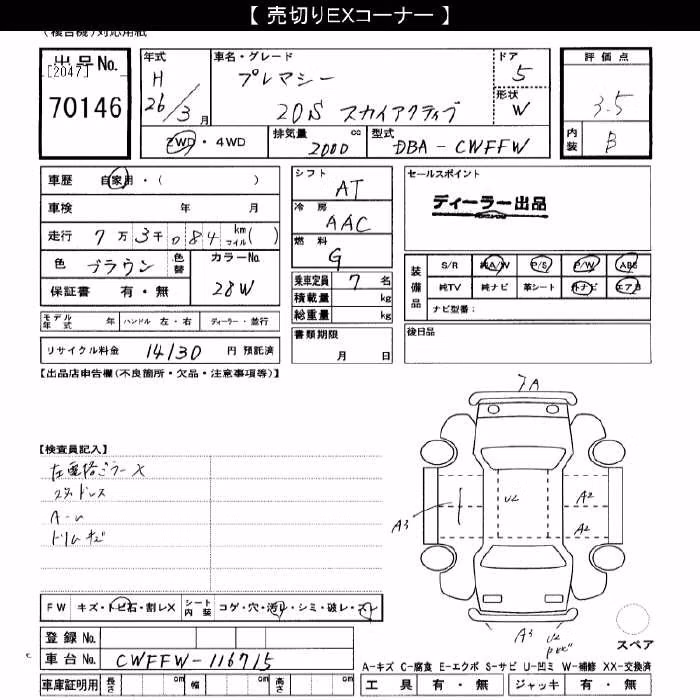 【 売切りEXコーナー 】
(複合機)対応用紙
出品No.
[2047]
70146
年式
H
26/3月
車名・グレード
プレマシー
20S スカイアクティブ
ドア
5
形状
W
2WD・4WD
排気量 cc
2000
型式
DBA-CWFFW
評価点
3.5
内装
B
車歴 自家用・( )
車検 年 月
走行 7万3千084 km マイル( )
色 ブラウン 色替
カラーNo.
28W
保証書 有・無
モデル年式 年 ハンドル 左・右 ディーラー・並行
リサイクル料金 14130 円 預託済
シフト
AT
冷房
AAC
燃料
G
乗車定員 7 名
積載量 kg
総重量 kg
書類期限
月 日
セールスポイント
ディーラー出品
装備品
S/R 純A/W P/S P/W ABS
純TV 純ナビ 革シート 外ナビ エアB
ナビ型番:
後日品
【出品店申告欄(不良箇所・欠品・注意事項等)】
【検査員記入】
A-U
7A
U2
A2
A3
A2
A3
U2
FW キズ・トビ石・割レX シート内装 コゲ・穴・汚レ・シミ・破レ・スレ
登録No.
車台No. CWFFW-116715
車庫証明用 長さ cm 幅 cm 高さ cm
スペア
A-キズ C-腐食 E-エクボ S-サビ U-凹ミ W-補修 XX-交換済
工具 有・無 ジャッキ 有・無